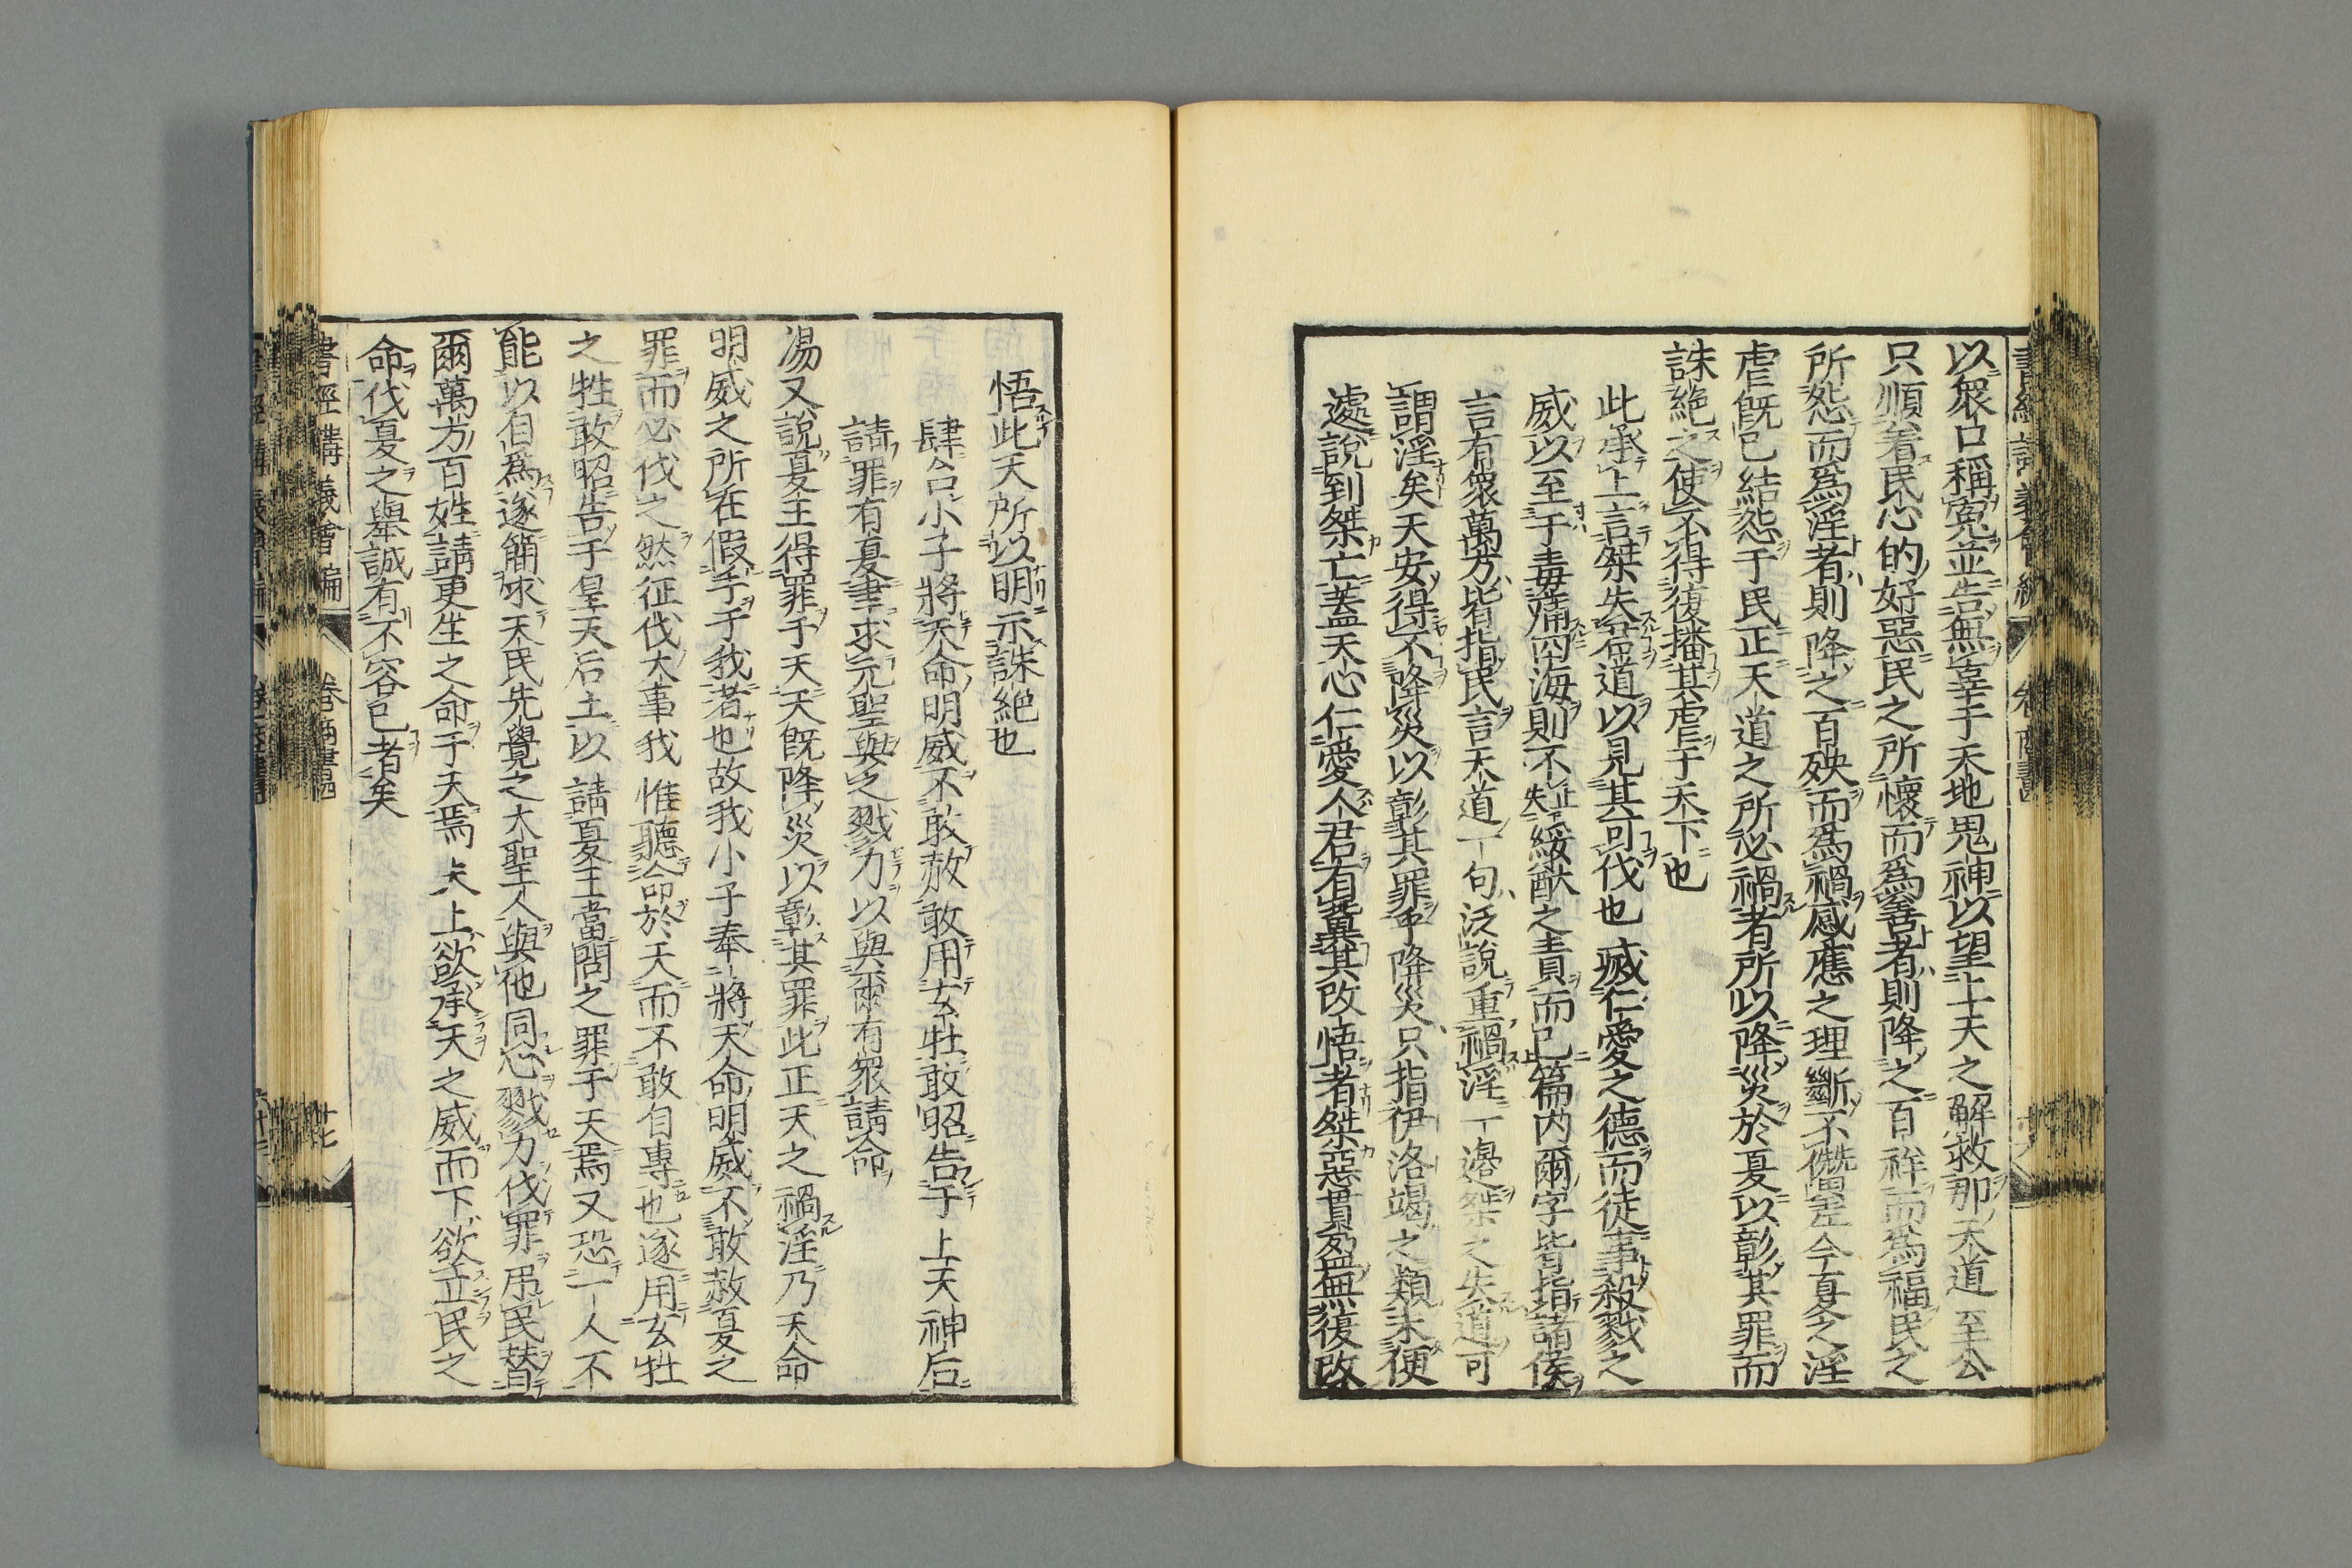 以衆口稱寃並告無辜于天地鬼神以望上天之解救那天道至公
只順着民心的好惡民之所懷而爲善者則降之百祥而爲福民之
所怨而爲淫者則降之百殃而爲禍感應之理斷不僣差今夏之淫
虐旣已結怨于民正天道之所必禍者所以降災於夏以彰其罪而
誅絶之使不得復播其虐于天下也
此承上言桀失君道以見其可伐也滅仁愛之德而徒事殺戮之
威以至于毒痡四海則不止失綏猷之責而已篇内爾字皆指諸侯
言有衆萬方皆指民言天道一句泛說重禍淫一邉桀之失道可
謂淫矣天安得不降災以彰其罪乎降災只指伊洛竭之類未便
處說到桀亡蓋天心仁愛人君有冀其改悟者桀惡貫盈無復改
悟此天所以明示誅絶也
肆台小子將天命明威不敢赦敢用玄牡敢昭告于上天神后
請罪有夏聿求元聖與之戮力以與爾有衆請命
湯又說夏王得罪于天天旣降災以彰其罪此正天之禍淫乃天命
明威之所在假手于我者也故我小子奉將天命明威不敢赦夏之
罪而必伐之然征伐大事我惟聽命於天而不敢自專也遂用玄牡
之牲敢昭告于皇天后土以請夏王當問之罪于天焉又恐一人不
能以自爲遂簡求天民先覺之大聖人與他同心戮力伐罪吊民替
爾萬方百姓請更生之命于天焉夫上欲承天之威而下欲立民之
命伐夏之舉誠有不容已者矣
書經講義會編
卷
商書
廿七